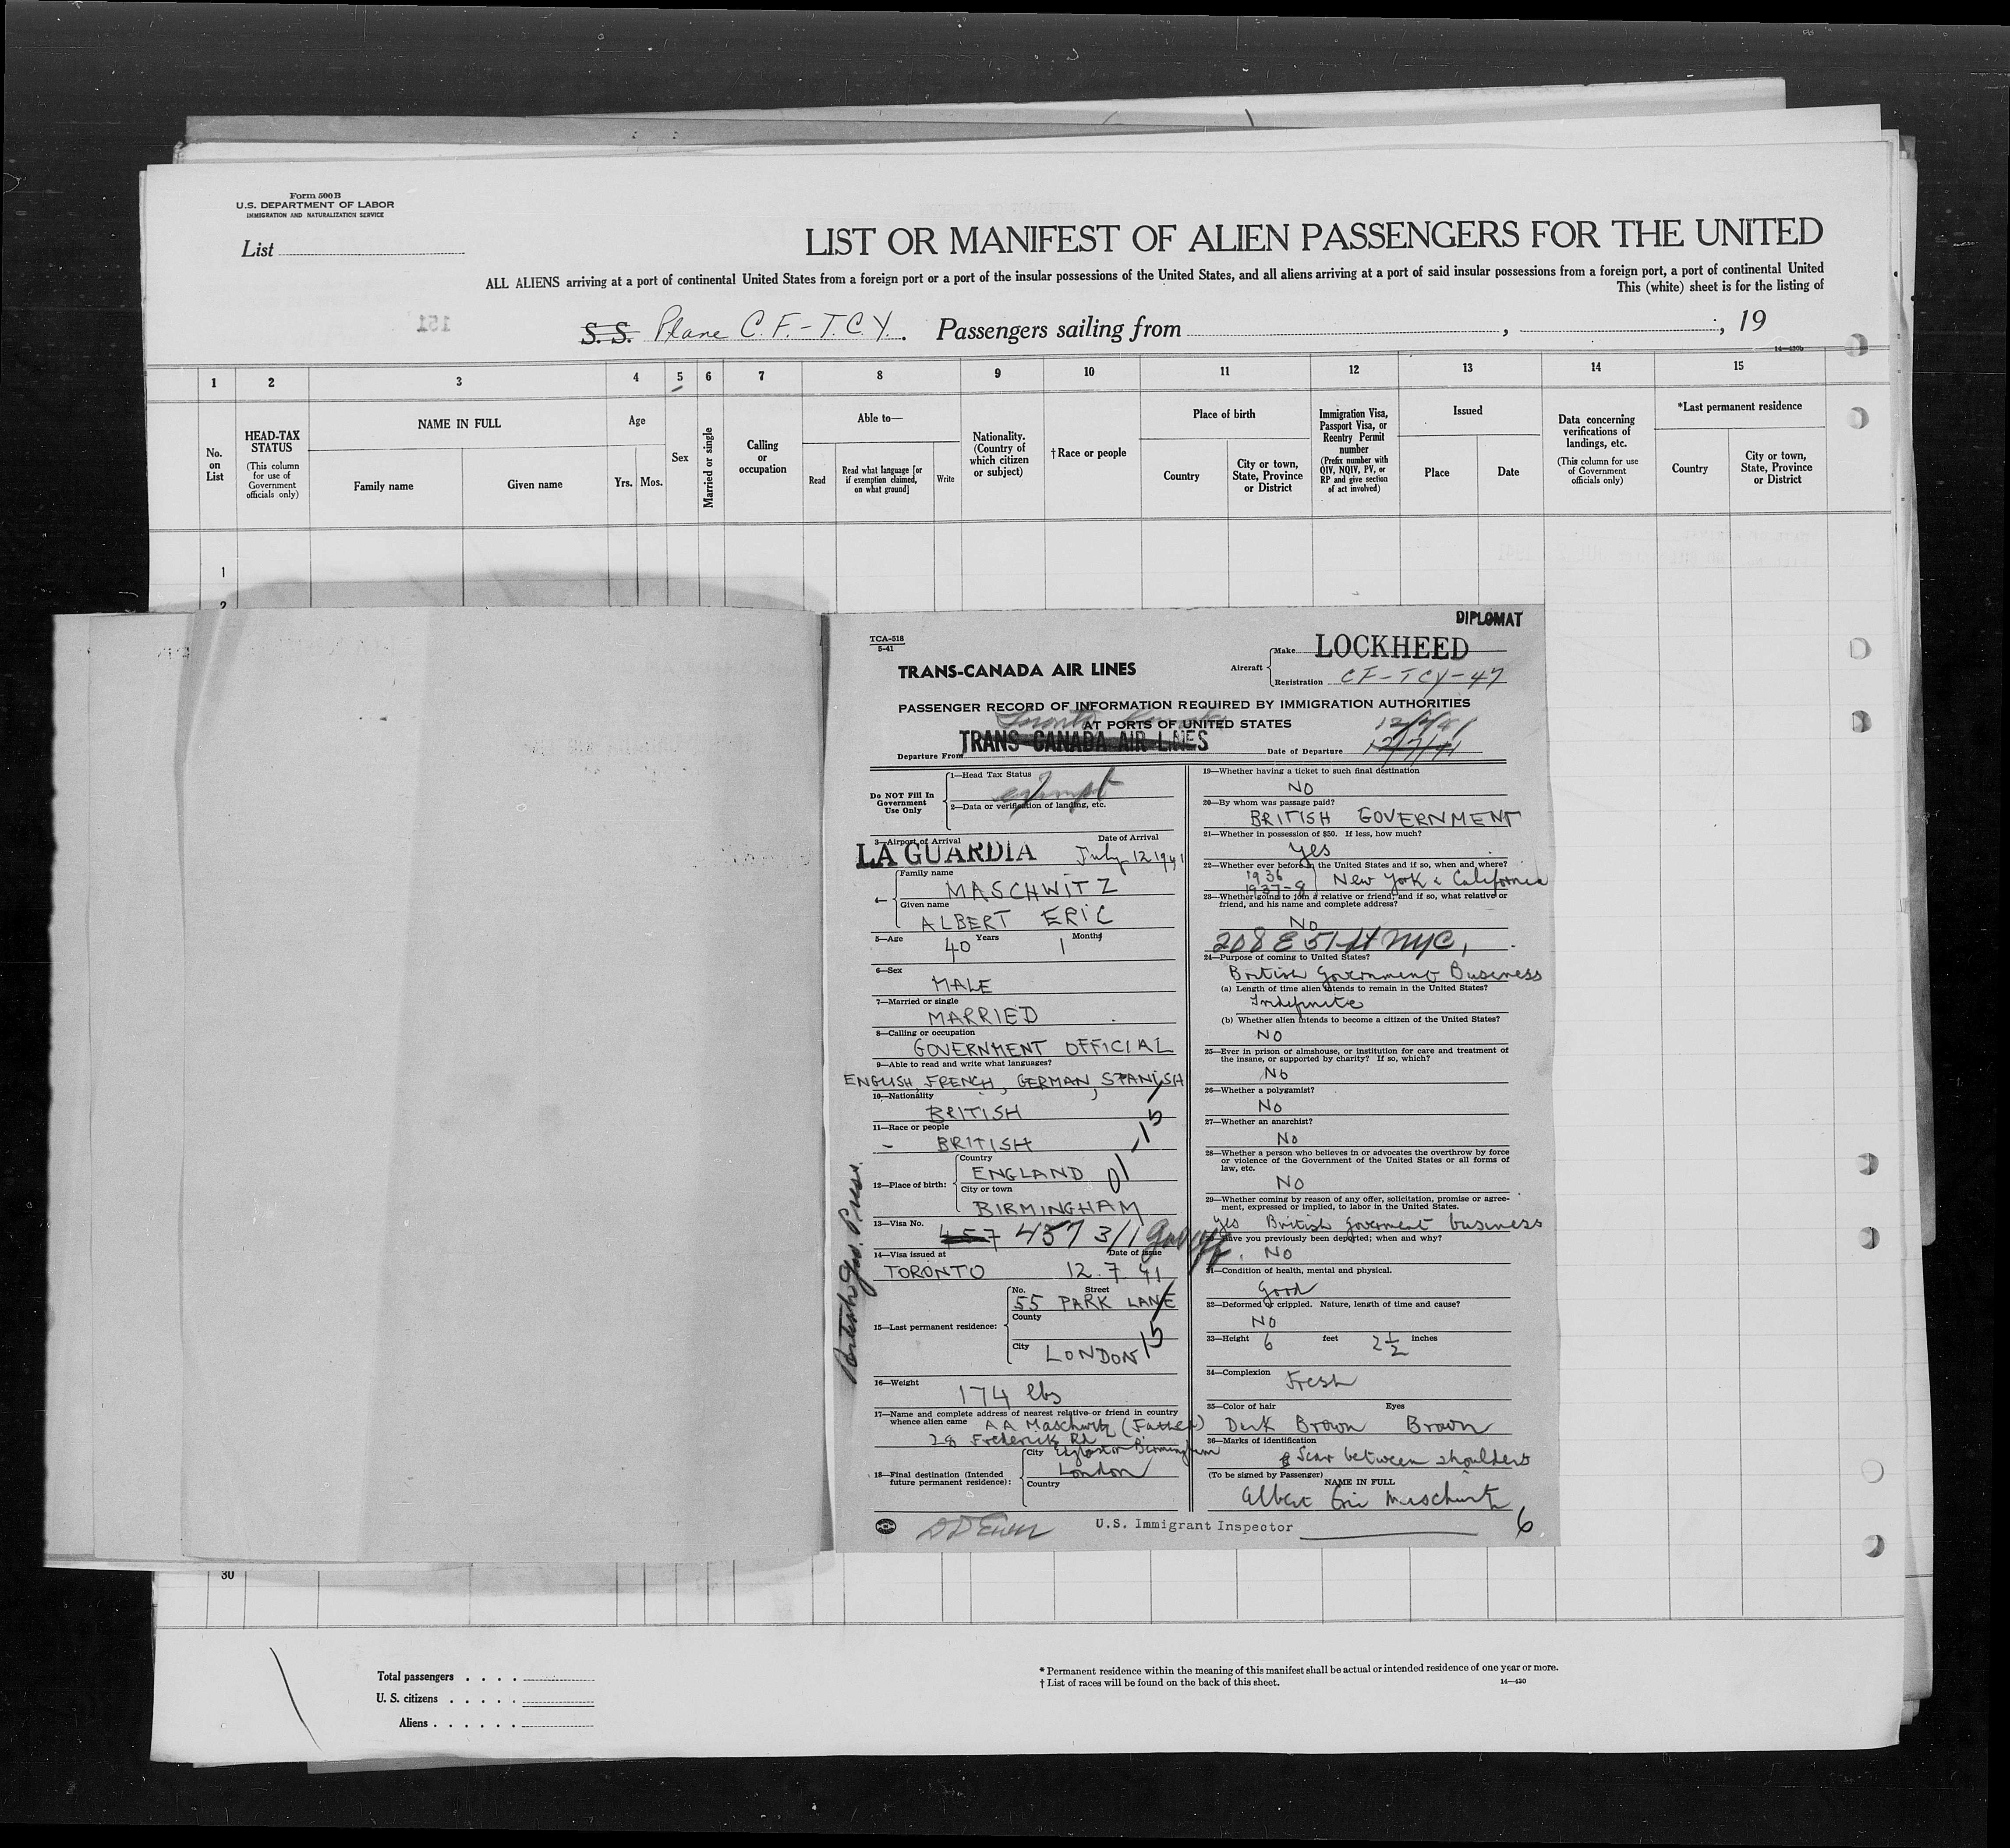 Form 500 B
U.S. DEPARTMENT OF LABOR
IMMIGRATION AND NATURALIZATION SERVICE
List
LIST OR MANIFEST OF ALIEN PASSENGERS FOR THE UNITED
ALL ALIENS arriving at a port of continental United States from a foreign port or a port of the insular possessions of the United States, and all aliens arriving at a port of said insular possessions from a foreign port, a port of continental United
This (white) sheet is for the listing of
151
S.S. Plane C.F.-T.C.Y. Passengers sailing from , , 19
14—430b
1 2 3 4 5 6 7 8 9 10 11 12 13 14 15
No. on List
HEAD-TAX STATUS
(This column for use of Government officials only)
NAME IN FULL
Family name Given name
Age
Yrs. Mos.
Sex
Married or single
Calling or occupation
Able to—
Read
Read what language [or if exemption claimed, on what ground]
Write
Nationality. (Country of which citizen or subject)
†Race or people
Place of birth
Country
City or town, State, Province or District
Immigration Visa, Passport Visa, or Reentry Permit number
(Prefix number with QIV, NQIV, PV, or RP and give section of act involved)
Issued
Place Date
Data concerning verifications of landings, etc.
(This column for use of Government officials only)
*Last permanent residence
Country
City or town, State, Province or District
1
2
DIPLOMAT
TCA-518
5-41
TRANS-CANADA AIR LINES
Aircraft
Make LOCKHEED
Registration CF-TCY-47
PASSENGER RECORD OF INFORMATION REQUIRED BY IMMIGRATION AUTHORITIES
AT PORTS OF UNITED STATES
Toronto
12/7/41
Departure From TRANS CANADA AIR LINES Date of Departure 12/7/41
Do NOT Fill In Government Use Only
1—Head Tax Status exempt
2—Data or verification of landing, etc.
3—Airport of Arrival Date of Arrival
LA GUARDIA July 12 1941
4—
Family name
MASCHWITZ
Given name
ALBERT ERIC
5—Age 40 Years 1 Months
6—Sex
MALE
7—Married or single
MARRIED
8—Calling or occupation
GOVERNMENT OFFICIAL
9—Able to read and write what languages?
ENGLISH, FRENCH, GERMAN, SPANISH
10—Nationality
BRITISH
11—Race or people
- BRITISH 15
12—Place of birth:
Country
ENGLAND 01
City or town
BIRMINGHAM
13—Visa No.
457 457 3/1
14—Visa issued at Date of issue
TORONTO 12.7.41
15—Last permanent residence:
No. Street
55 PARK LANE
County
City LONDON 15
16—Weight
174 lbs
17—Name and complete address of nearest relative or friend in country
whence alien came A A Maschwitz (Father)
28 Frederick Rd
Edgbaston Birmingham
18—Final destination (Intended future permanent residence):
City London
Country
19—Whether having a ticket to such final destination
NO
20—By whom was passage paid?
BRITISH GOVERNMENT
21—Whether in possession of $50. If less, how much?
Yes
22—Whether ever before in the United States and if so, when and where?
1936
1937-8 } New York & California
23—Whether going to join a relative or friend; and if so, what relative or
friend, and his name and complete address?
No
208 E 51 st NYC,
24—Purpose of coming to United States?
British Government Business
(a) Length of time alien intends to remain in the United States?
Indefinite
(b) Whether alien intends to become a citizen of the United States?
NO
25—Ever in prison or almshouse, or institution for care and treatment of
the insane, or supported by charity? If so, which?
No
26—Whether a polygamist?
No
27—Whether an anarchist?
No
28—Whether a person who believes in or advocates the overthrow by force
or violence of the Government of the United States or all forms of
law, etc.
NO
29—Whether coming by reason of any offer, solicitation, promise or agree-
ment, expressed or implied, to labor in the United States.
yes British goverment business
Have you previously been deported; when and why?
No
31—Condition of health, mental and physical.
Good
32—Deformed or crippled. Nature, length of time and cause?
NO
33—Height 6 feet 2 1/2 inches
34—Complexion Fresh
35—Color of hair Eyes
Dark Brown Brown
36—Marks of identification
Scar between shoulders
(To be signed by Passenger) NAME IN FULL
Albert Eric Maschwitz
U.S. Immigrant Inspector
6
30
Total passengers
U. S. citizens
Aliens
* Permanent residence within the meaning of this manifest shall be actual or intended residence of one year or more.
† List of races will be found on the back of this sheet.
14—430